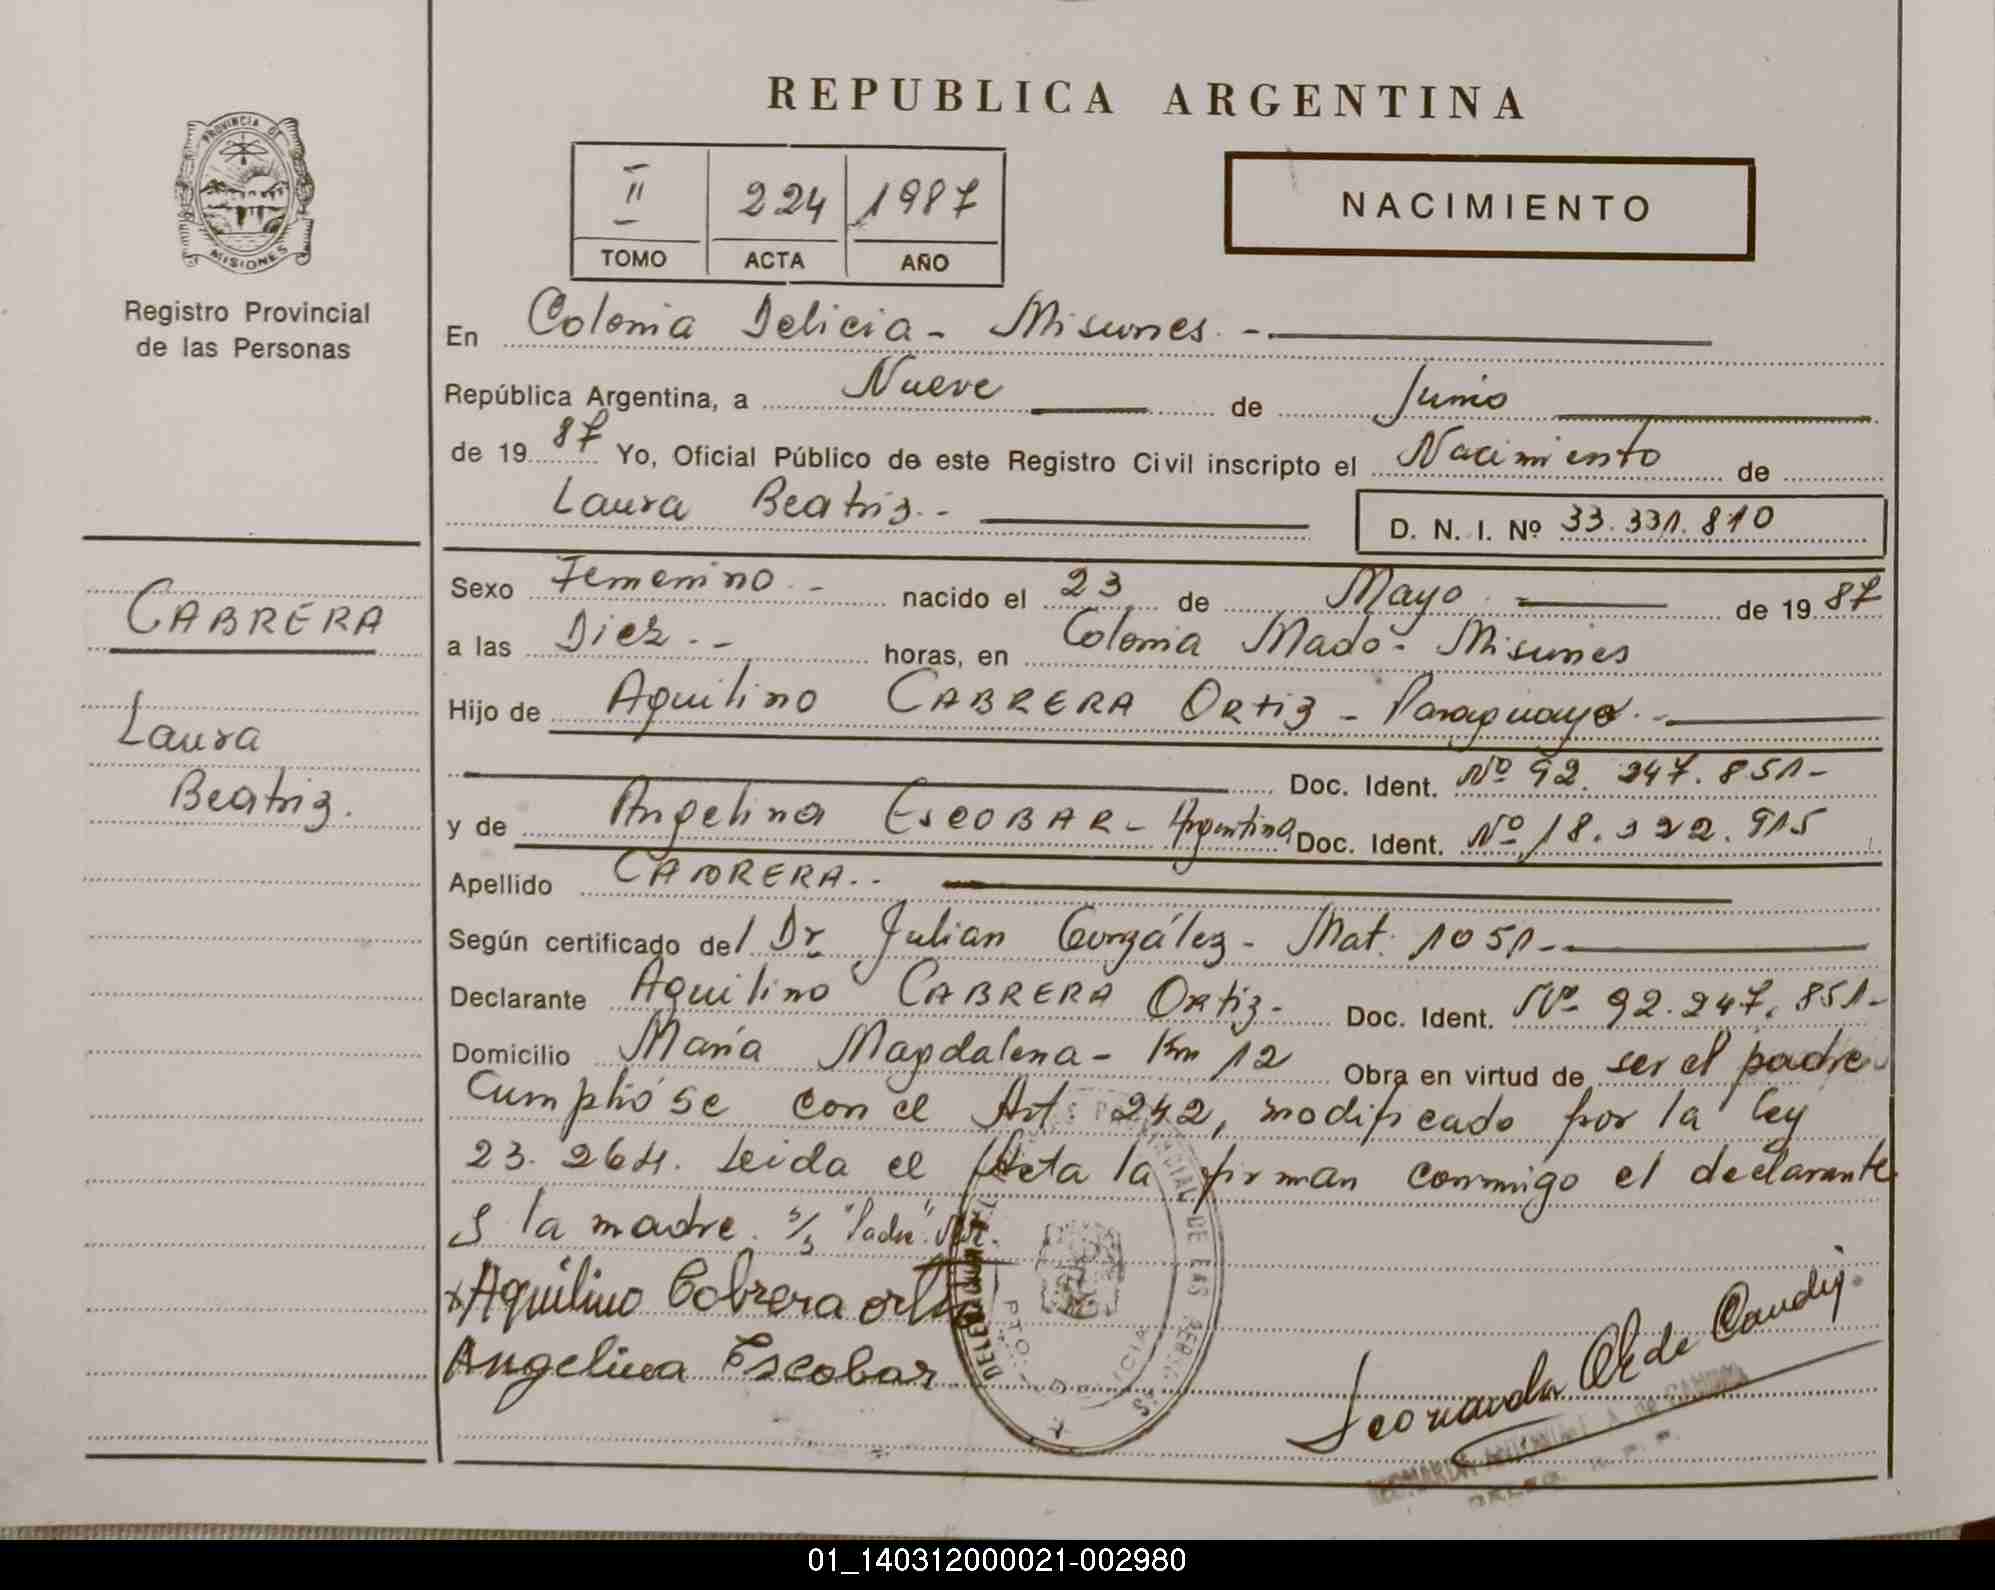 REPUBLICA ARGENTINA
PROVINCIA DE
MISIONES
Registro Provincial
de las Personas
II 224 1987
TOMO ACTA AÑO
NACIMIENTO
En Colonia Delicia - Misiones. -
República Argentina, a Nueve de Junio
de 19 87 Yo, Oficial Público de este Registro Civil inscripto el Nacimiento de
Laura Beatriz. -
D. N. I. Nº 33.331.810
CABRERA
Laura
Beatriz.
Sexo Femenino. - nacido el 23 de Mayo. de 19 87
a las Diez. - horas, en Colonia Mado - Misiones
Hijo de Aquilino CABRERA Ortiz - Paraguayo. -
Doc. Ident. Nº 92. 247. 851-
y de Angelina ESCOBAR - Argentina Doc. Ident. Nº 18. 322. 915
Apellido CABRERA. -
Según certificado del Dr Julian González - Mat. 1051-
Declarante Aquilino CABRERA Ortiz - Doc. Ident. Nº 92.247.851-
Domicilio María Magdalena - Km 12 Obra en virtud de ser el padre
Cumplióse con el Art. 242, modificado por la ley
23. 264. Leida el Acta la firman conmigo el declarante
y la madre. "Padre"
x Aquilino Cabrera ortiz
Angelina Escobar
Leonarda de
PTO. DELICIA
DE LAS
01_140312000021-002980